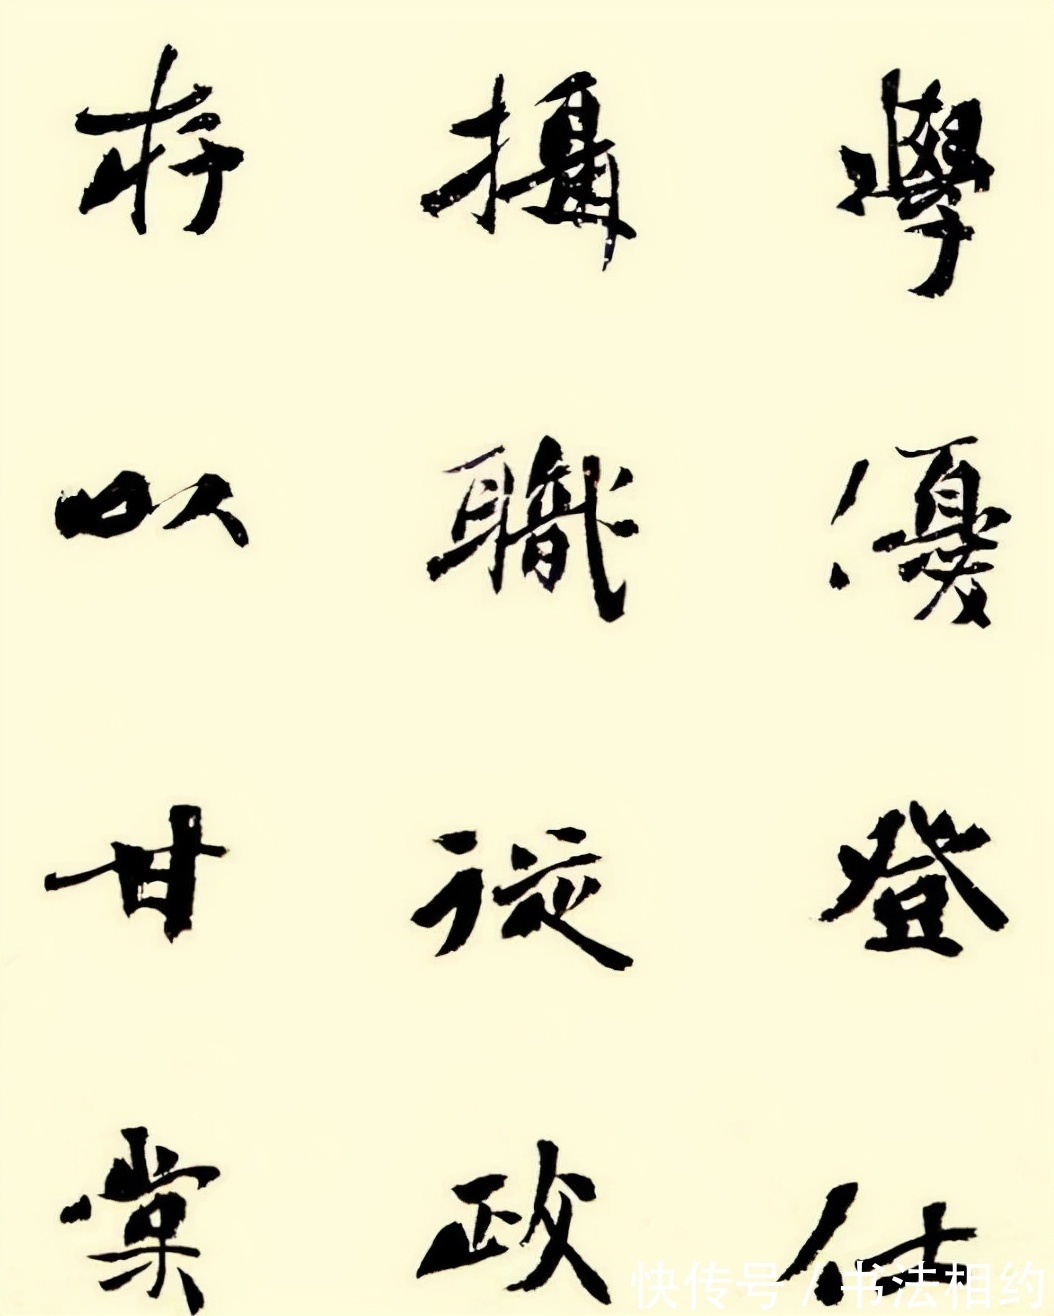 學優登仕
攝職從政
存以甘棠
快传号 / 书法相约